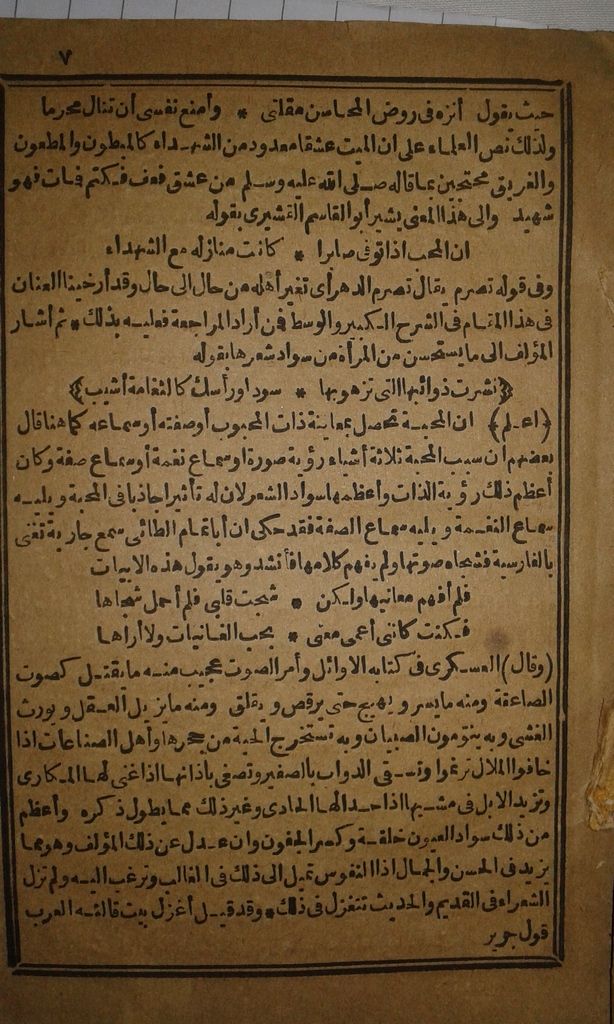 ٧
حيث يقول أنزه فى روض المحاسن مقلتى * وأمنع نفسى أن تنال محرما
ولذلك نص العلماء على ان الميت عشقا معدود من الشهداء كالمبطون والمطعون
والغريق محتجين بما قاله صلى الله عليه وسلم من عشق فعف فكتم فمات فهو
شهيد والى هذا المعنى يشير أبو القاسم القشيرى بقوله
ان المحب اذا توفى صابرا * كانت منازله مع الشهداء
وفى قوله تصرم يقال تصرم الدهر أى تغير أهله من حال الى حال وقد أرخينا العنان
فى هذا المقام فى الشرح الكبير والوسط فمن أراد المراجعة فعليه بذلك * ثم أشار
المؤلف الى ما يستحسن من المرأة من سواد شعرها بقوله
﴿نشرت ذوائبها التى تزهو بها * سودا ورأسك كالثغامة أشيب﴾
(اعلم) ان المحبة تحصل بمعاينة ذات المحبوب أو صفته أو سماعه كما هنا قال
بعضهم ان سبب المحبة ثلاثة أشياء رؤية صورة او سماع نغمة أو سماع صفة وكان
أعظم ذلك رؤية الذات وأعظمها سواد الشعر لان له تأثيرا جاذبا فى المحبة ويليه
سماع النغمة ويليه سماع الصفة فقد حكى ان أبا تمام الطائى سمع جارية تغنى
بالفارسية فشجاه صوتها ولم يفهم كلامها فأنشد وهو يقول هذه الابيات
فلم أفهم معانيها ولكن * شجت قلبى فلم أحمل شجاها
فكنت كاننى أعمى معنى * بحب الغانيات ولا أراها
(وقال) العسكرى فى كتابه الاوائل وأمر الصوت عجيب منه ما يقتل كصوت
الصاعقة ومنه ما يسر ويهيج حتى يرقص ويقلق ومنه ما يزيل العقل ويورث
الغشى وبه ينومون الصبيان وبه تستخرج الحية من جحرها وأهل الصناعات اذا
خافوا الملال ترنموا وتسقى الدواب بالصفير وتصغى باذانها اذا غنى لها المكارى
وتزيد الابل فى مشيها اذا حدا لها الحادى وغير ذلك مما يطول ذكره وأعظم
من ذلك سواد العيون خلقة وكسر الجفون وان عدل عن ذلك المؤلف وهو مما
يزيد فى الحسن والجمال اذ النفوس تميل الى ذلك فى الغالب وترغب اليه ولم تزل
الشعراء فى القديم والحديث تتغزل فى ذلك * وقد قيل أغزل بيت قالته العرب
قول جرير